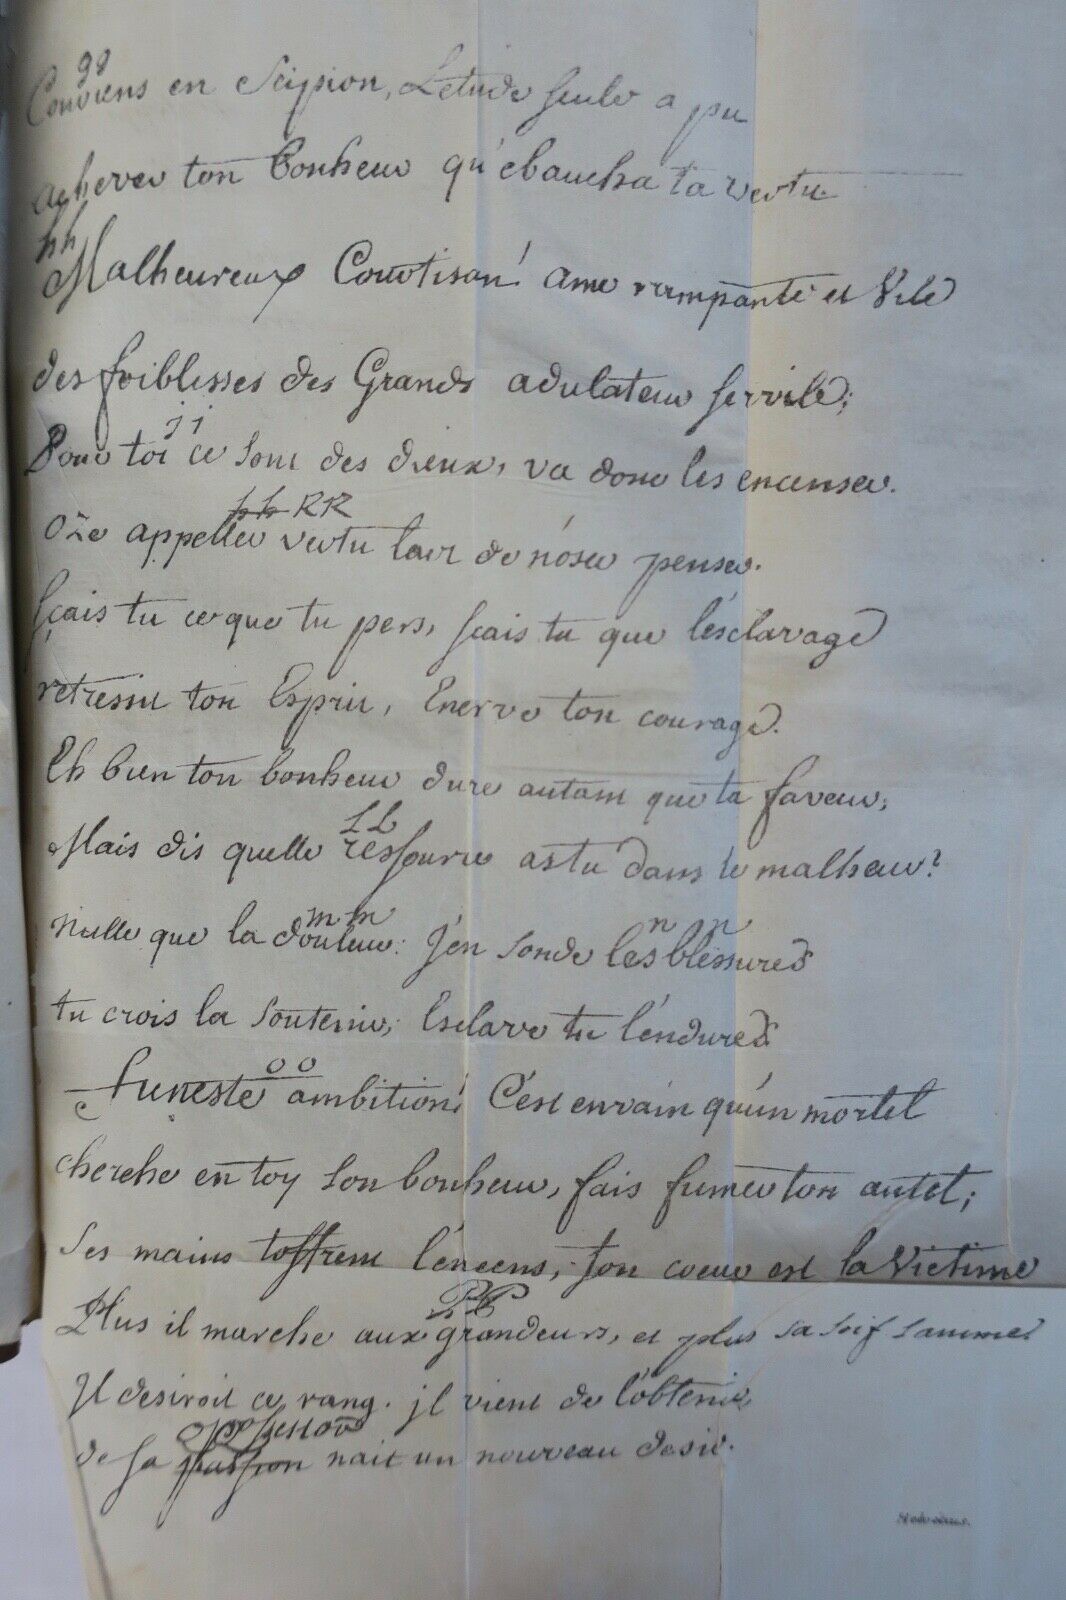 gg
Conviens en Scipion, L'etude seule a pu
achever ton bonheur qu'ebaucha ta vertu.
hh
Malheureux Courtisan! ame rampante et Vile
des foiblesses des Grands adulateur servile;
jj
Pour toi ce sont des dieux, va donc les encenser.
hh RR
oze appeller vertu l'art de n'oser penser.
sçais tu ce que tu pers, sçais tu que l'esclavage
retressit ton Esprit, Enerve ton courage.
Eh bien ton bonheur dure autant que ta faveur;
LL
Mais dis quelle ressource as tu dans le malheur?
mm nn
nulle que la douleur: J'en sonde les blessures
tu crois la soutenir; Esclave tu l'endures
oo
funeste ambition! C'est en vain qu'un mortel
cherche en toy son bonheur, fais fumer ton autel;
ses mains t'offrent l'encens, son coeur est la Victime
PP
Plus il marche aux grandeurs, et plus sa soif s'anime
Il desiroit ce rang. jl vient de l'obtenir,
possession
de sa passion nait un nouveau desir.
Helvétius.